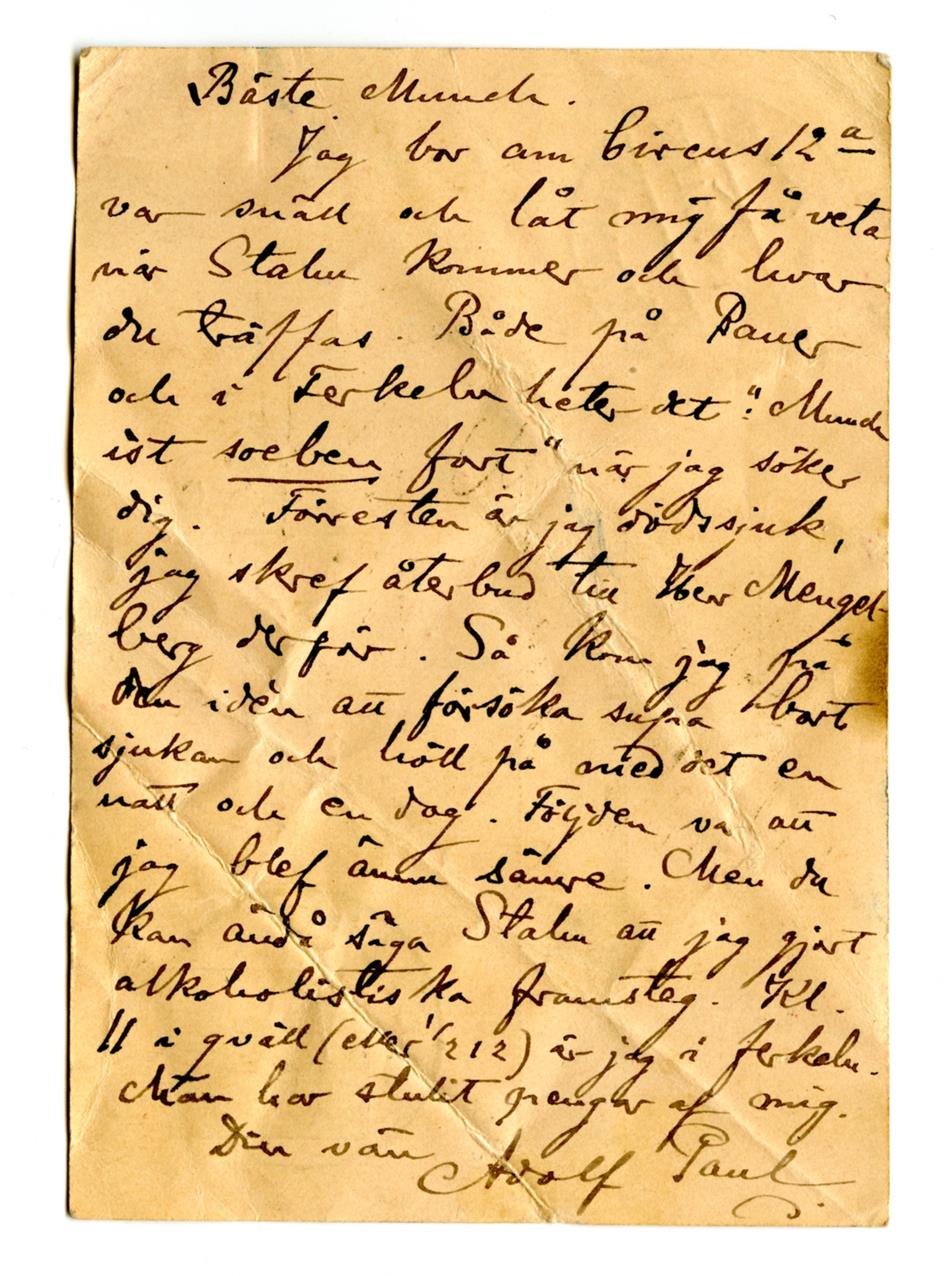 Bäste Munch.
Jag bor am Circus 12 a
var snäll och låt mig få veta
när Stahn kommer och hvar
du träffas. Både på Bauer
och i Ferkeln heter det "Munch
ist soeben fort" när jag söker
dig. Förresten är jag dödssjuk,
jag skref återbud till Herr Mengel-
berg derför. Så kom jag på
den idén att försöka supa bort
sjukan och höll på med det en
natt och en dag. Följden va att
jag blef ännu sämre. Men du
kan ändå säga Stahn att jag gjort
alkoholistiska framsteg. Kl.
11 i qväll (eller 1/2 12) är jag i Ferkeln.
Man har stulit pengar af mig.
Din vän
Adolf Paul